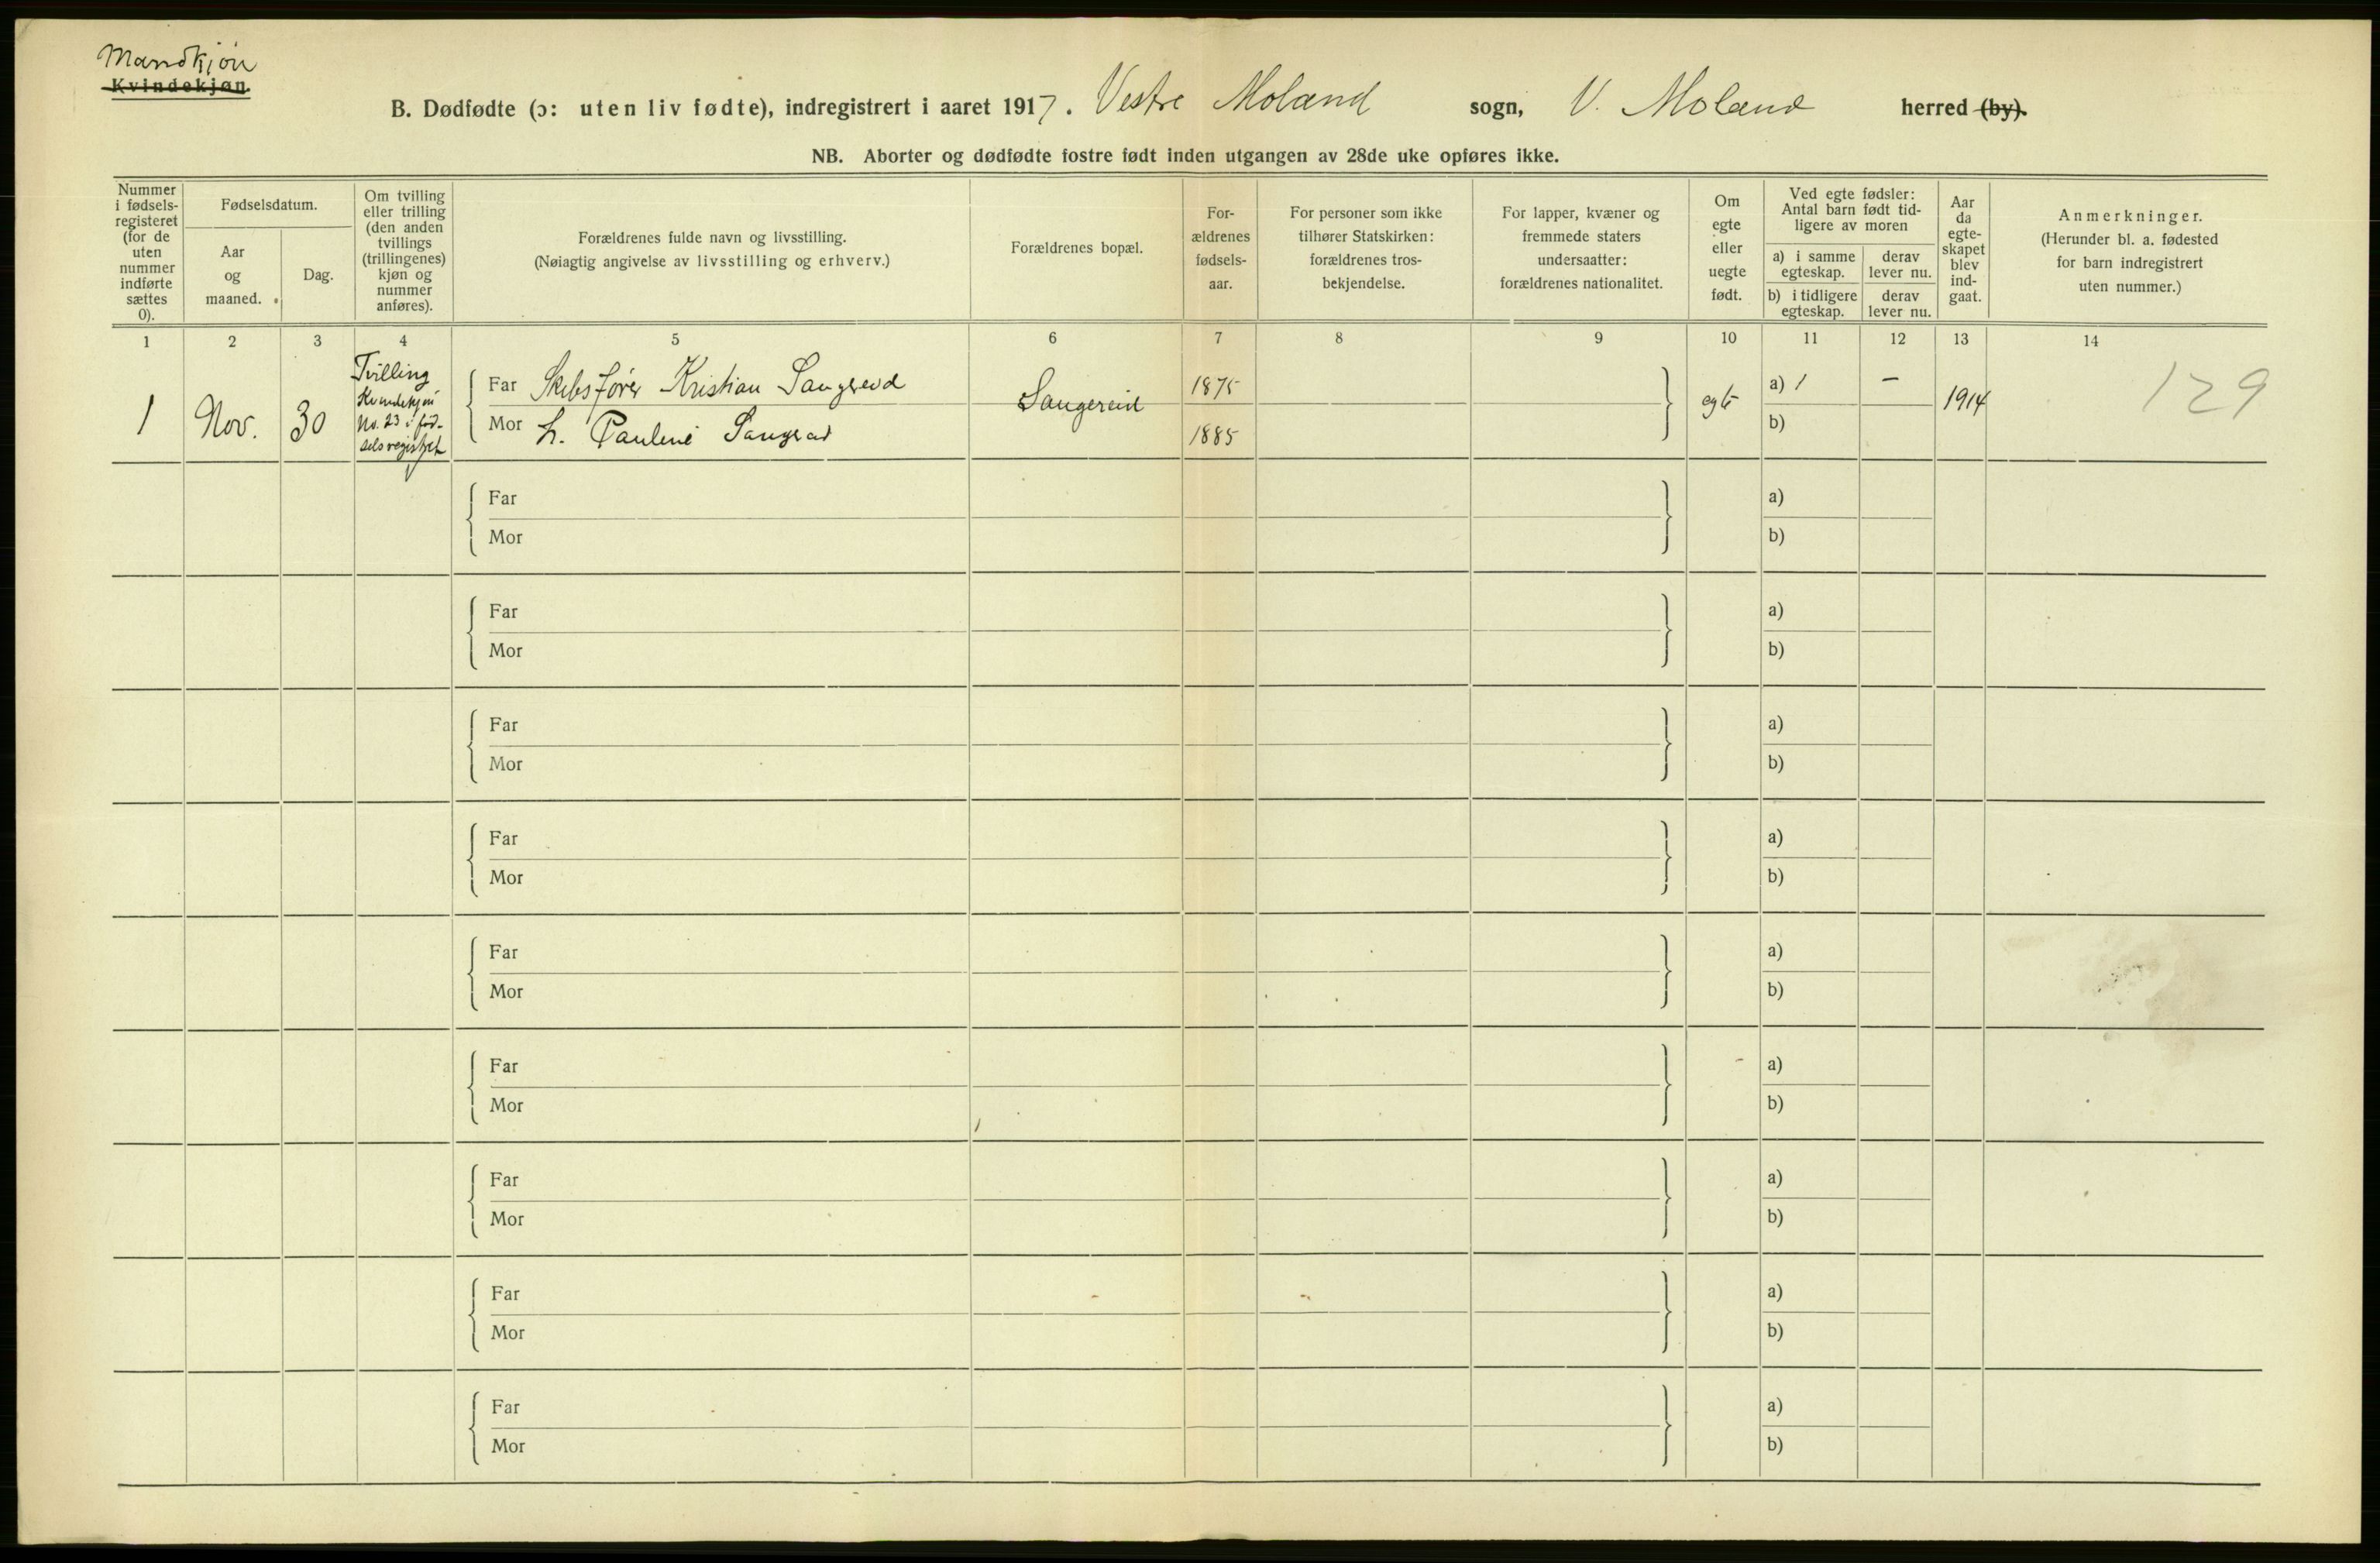 Mandkjøn
Kvindekjøn.
B. Dødfødte (ɔ: uten liv fødte), indregistrert i aaret 1917. Vestre Moland sogn, V. Moland herred (by).
NB. Aborter og dødfødte fostre født inden utgangen av 28de uke opføres ikke.
Nummer
i fødsels-
registeret
(for de
uten
nummer
indførte
sættes
0).
Fødselsdatum.
Aar
og
maaned.
Dag.
Om tvilling
eller trilling
(den anden
tvillings
(trillingenes)
kjøn og
nummer
anføres).
Forældrenes fulde navn og livsstilling.
(Nøiagtig angivelse av livsstilling og erhverv.)
Forældrenes bopæl.
For-
ældrenes
fødsels-
aar.
For personer som ikke
tilhører Statskirken:
forældrenes tros-
bekjendelse.
For lapper, kvæner og
fremmede staters
undersaatter:
forældrenes nationalitet.
Om
egte
eller
uegte
født.
Ved egte fødsler:
Antal barn født tid-
ligere av moren
a) i samme
egteskap.
derav
lever nu.
b) i tidligere
egteskap.
derav
lever nu.
Aar
da
egte-
skapet
blev
ind-
gaat.
Anmerkninger.
(Herunder bl. a. fødested
for barn indregistrert
uten nummer.)
1 2 3 4 5 6 7 8 9 10 11 12 13 14
1
Nov.
30
Tvilling
Kvindekjøn
No. 23 i fød-
selsregistret
Far Skibsfører Kristian Saugereid
Mor L. Pauline
Saugereid
1875
1885
egte
a) 1
–
b)
1914
129
Far
Mor
a)
b)
Far
Mor
a)
b)
Far
Mor
a)
b)
Far
Mor
a)
b)
Far
Mor
a)
b)
Far
Mor
a)
b)
Far
Mor
a)
b)
Far
Mor
a)
b)
Far
Mor
a)
b)